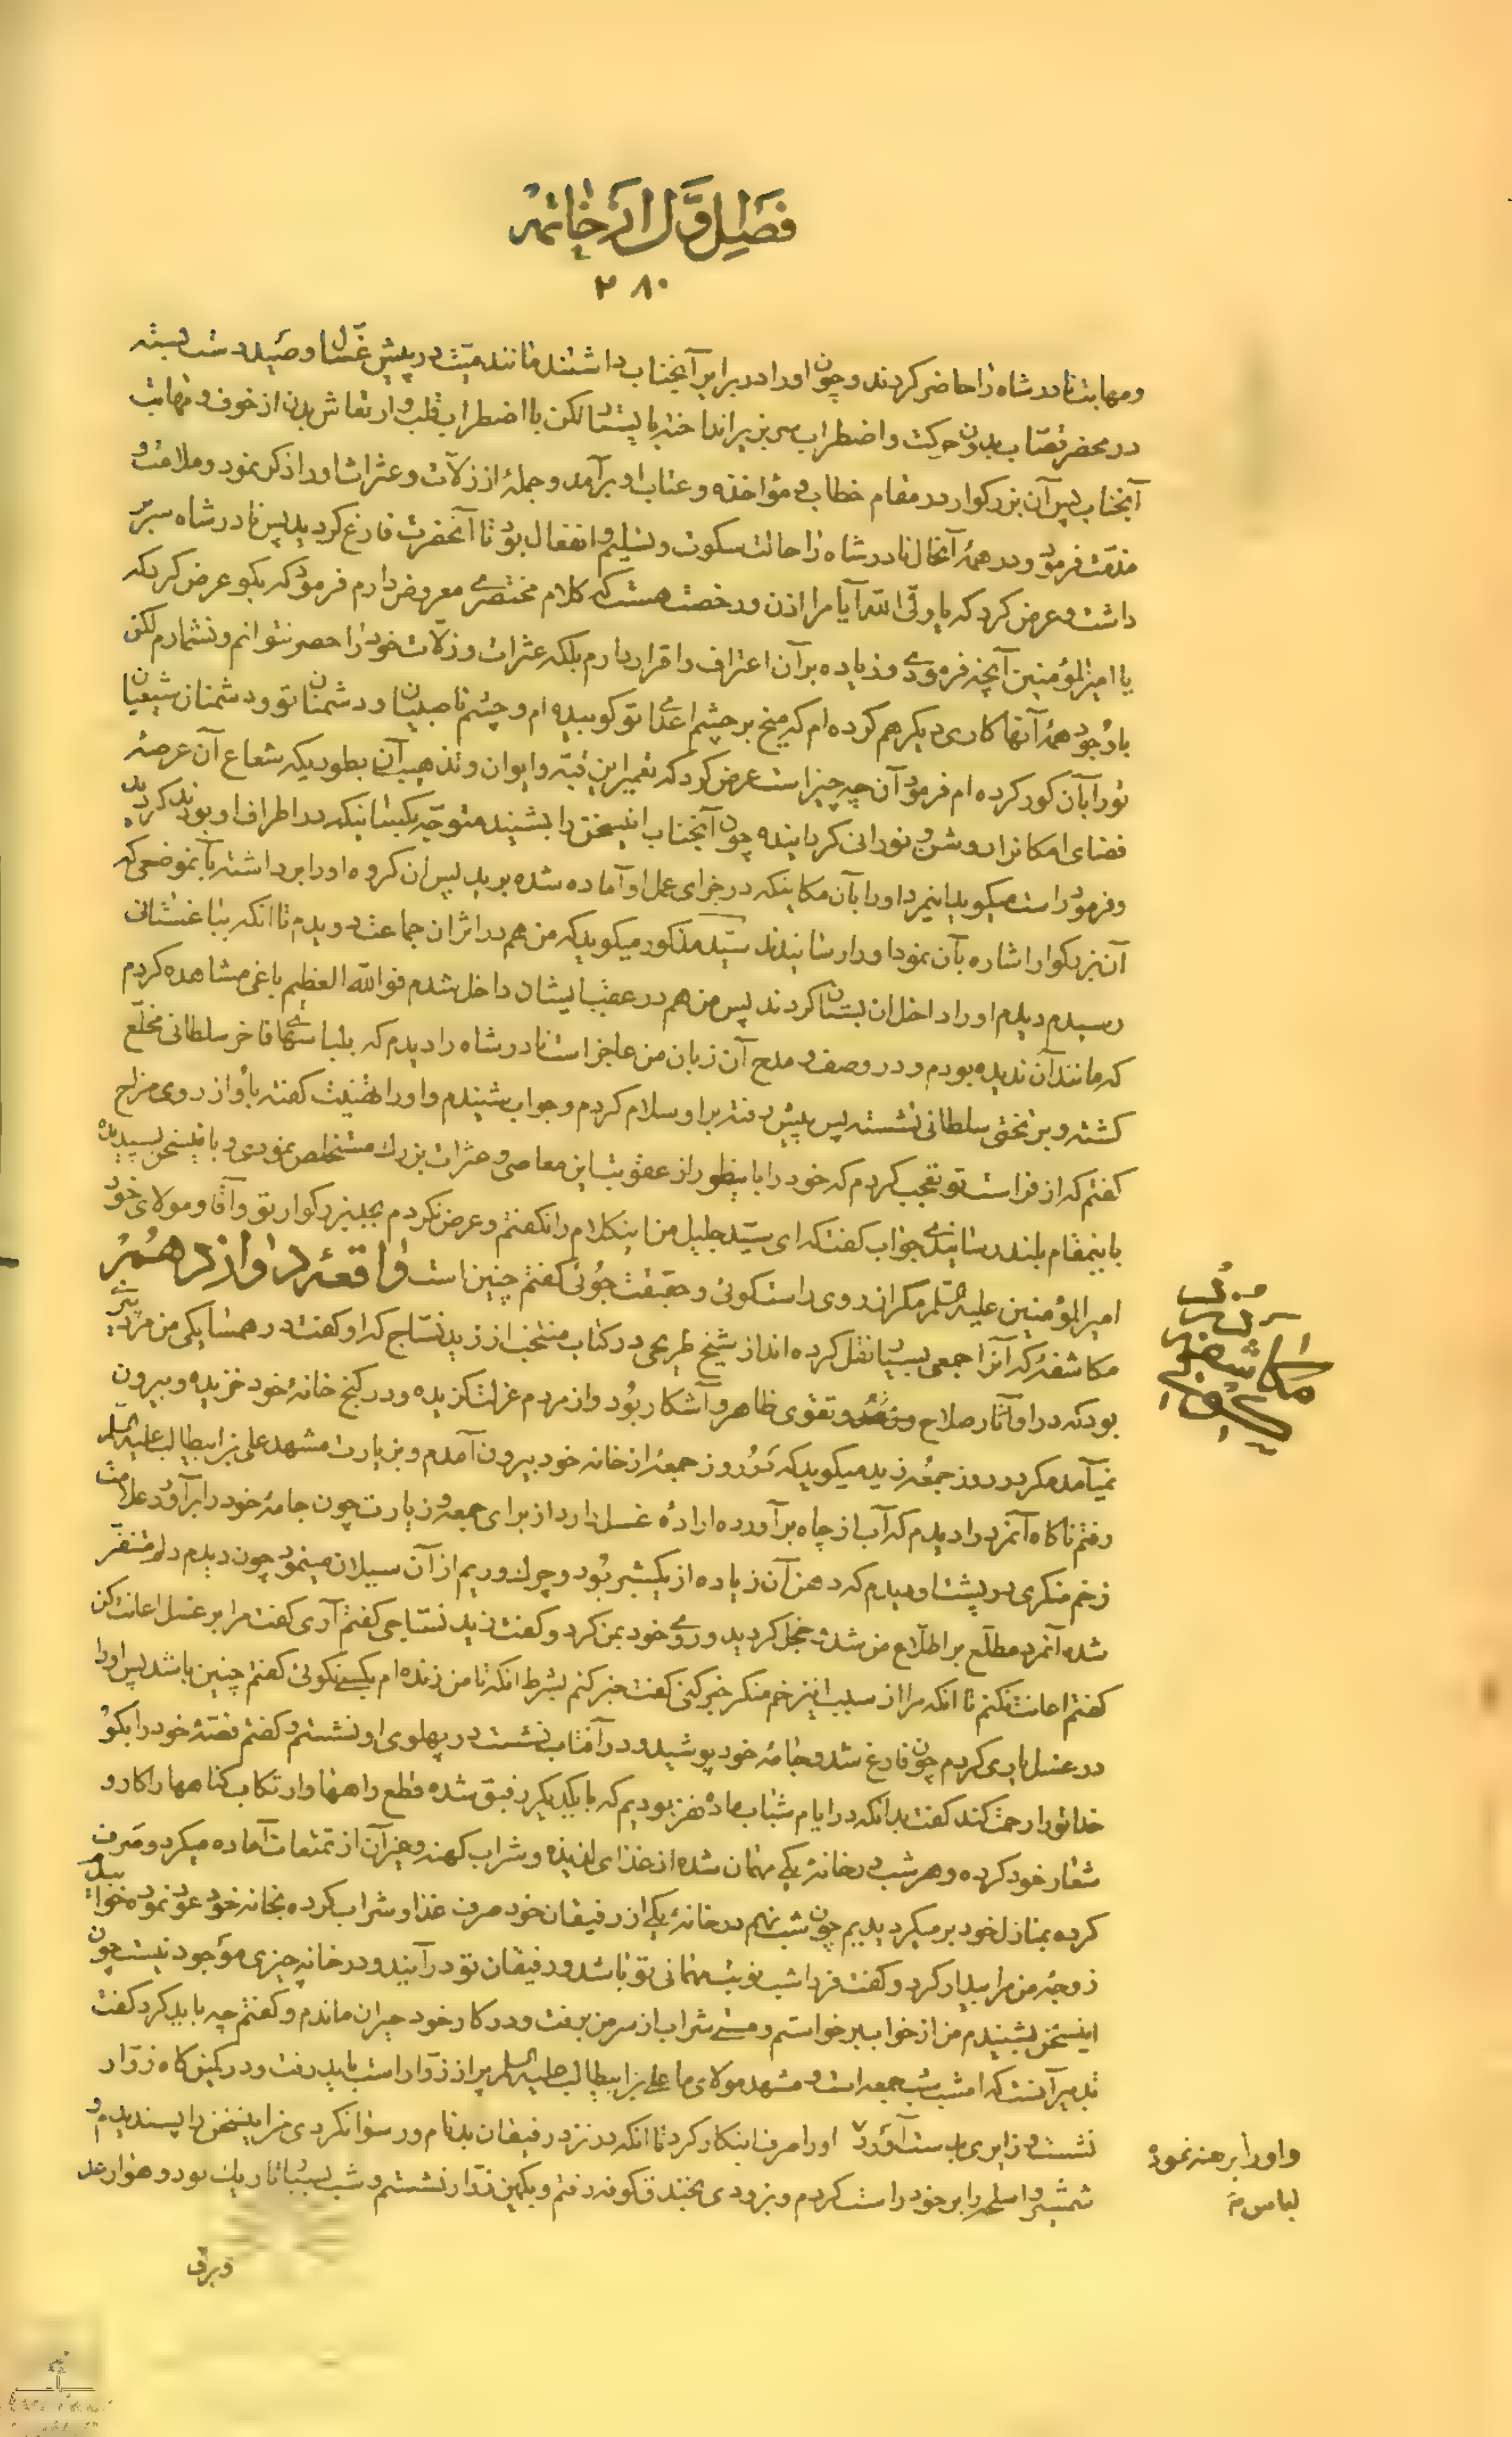 فصل اول از خاتمه
۲۸۰
و مهابت نادر شاه را حاضر کردند و چون او را در برابر آنجناب داشتند مانند میّت در پیش غسّال و صید دست بسته
در محضر قصّاب بدون حرکت و اضطراب سر بزیر انداخته بایستاد لکن با اضطراب قلب و ارتعاش بدن از خوف و مهابت
آنجناب پس آن بزرگوار در مقام خطاب و مؤاخذه و عتاب او برآمد و جملهٔ از زلّات و عثرات او را ذکر نمود و ملامت و
مذمّت فرمود و در همهٔ آنحال نادر شاه را حالت سکوت و تسلیم و انفعال بود تا آنحضرت فارغ گردید پس نادر شاه سر بر
داشت و عرض کرد که یا ولی الله آیا مرا اذن و رخصت هست که کلام مختصری معروض دارم فرمود که بگو عرض کرد که
یا امیر المؤمنین آنچه فرمودی و زیاده بر آن اعتراف و اقرار دارم بلکه عثرات و زلّات خود را حصر نتوانم و نشمارم لکن
باوجود همهٔ آنها کاری دیگر هم کرده ام که میخ بر چشم اعدای تو کوبیده ام و چشم ناصبیان و دشمنان تو و دشمنان شیعیان
تو را بآن کور کرده ام فرمود آن چه چیز است عرض کرد که تعمیر این قبّه و ایوان و تذهیب آن بطوریکه شعاع آن عرصهٔ
فضای امکان را روشن و نورانی گردانیده چون آنجناب اینسخن را بشنید متوجّه بکسانیکه در اطراف او بودند گردید
و فرمود راست میگوید اینمرد او را بآن مکانیکه در جزای عمل او آماده شده برید پس ان گروه او را برداشته بآنموضعی که
آن بزرگوار اشاره بآن نمود او را رسانیدند سیّد مذکور میگوید که من هم در اثر ان جماعت دویدم تا انکه بباغستانی
رسیدم دیدم او را داخل ان بستان کردند پس من هم در عقب ایشان داخل شدم فو الله العظیم باغی مشاهده کردم
که مانند آن ندیده بودم و در وصف و مدح آن زبان من عاجز است نادر شاه را دیدم که بلباسهای فاخر سلطانی مخلّع
گشته و بر تختی سلطانی نشسته پس پیش رفته بر او سلام کردم و جواب شنیدم و او را تهنیت گفته باو از روی مزاح
گفتم که از فراست تو تعجب کردم که خود را باینطور از عقوبت این معاصی و عثرات بزرگ مستخلص نمودی و باینسخن پسندیده
باینمقام بلند رسانیدی جواب گفت که ای سیّد جلیل من اینکلام را نگفتم و عرض نکردم بجد بزرگوار تو و آقا و مولای خود
امیر المؤمنین علیه السّلم مگر از روی راست گوئی و حقیقت جوئی گفتم چنین است واقعهٔ دوازدهم
مکاشفهٔ که آنرا جمعی بسیار نقل کرده اند از شیخ طریحی در کتاب منتخب از زید نسّاج که او گفت در همسایگی من مرد پیری
بود که در او آثار صلاح و زهد و تقوی ظاهر و آشکار بود و از مردم عزلت گزیده و در کنج خانهٔ خود خزیده و بیرون
نمیآمد مگر در روز جمعه زید میگوید که در روز جمعهٔ از خانه خود بیرون آمدم و بزیارت مشهد علی بن ابیطالب علیه السلم
رفتم ناگاه آنمرد را دیدم که آب از چاه برآورده ارادهٔ غسل دارد از برای جمعه و زیارت چون جامهٔ خود را برآورد علامت
زخم منکری در پشت او دیدم که دهن آن زیاده از یکشبر بود و چرک و ریم از آن سیلان مینمود چون دیدم دلم متنفّر
شد آنمرد مطّلع بر اطّلاع من شد خجل گردید و روی خود بمن کرد و گفت زید نسّاجی گفتم آری گفت مرا بر غسل اعانت کن
گفتم اعانت نکنم تا انکه مرا از سبب اینزخم منکر خبر کنی گفت خبر کنم بشرط انکه تا من زنده ام بکسی نگوئی گفتم چنین باشد پس او را
در غسل یاری کردم چون فارغ شد و جامهٔ خود پوشید و در آفتاب نشست در پهلوی او نشستم و گفتم قصّهٔ خود را بگو
خدا تو را رحمت کند گفت بدانکه در ایام شباب ما ده نفر بودیم که با یکدیگر رفیق شده قطع راهها و ارتکاب گناهها را کار و
شعار خود کرده و هر شب در خانهٔ یکی مهمان شده از غذای لذیذ و شراب کهنه و غیر آن از تمتعات آماده میکرد و صرف
کرده بمنازل خود بر میگردیدیم چون شب نهم در خانهٔ یکی از رفیقان خود صرف غذا و شراب کرده بخانه خود عود نموده خوابیدم
زوجهٔ من مرا بیدار کرد و گفت فردا شب نوبت مهمانی تو باشد و رفیقان تو درآیند و در خانه چیزی موجود نیست چون
اینسخن بشنیدم من از خواب برخواستم و مستی شراب از سر من برفت و در کار خود حیران ماندم و گفتم چه باید کرد گفت
تدبیر آنست که امشب شب جمعه است و مشهد مولای ما علی بن ابیطالب علیه السلم پر از زوّار است باید رفت و در کمین گاه زوّار
نشست و زایری بدست آورد و او را برهنه نموده لباس او را صرف اینکار کرد تا انکه در نزد رفیقان بدنام و رسوا نگردی من اینسخن را پسندیدم و
شمشیر و اسلحه را بر خود راست کردم و بزودی بخندق کوفه رفتم و بکمین زوّار نشستم و شب بسیار تاریک بود و هوا رعد
و برقی